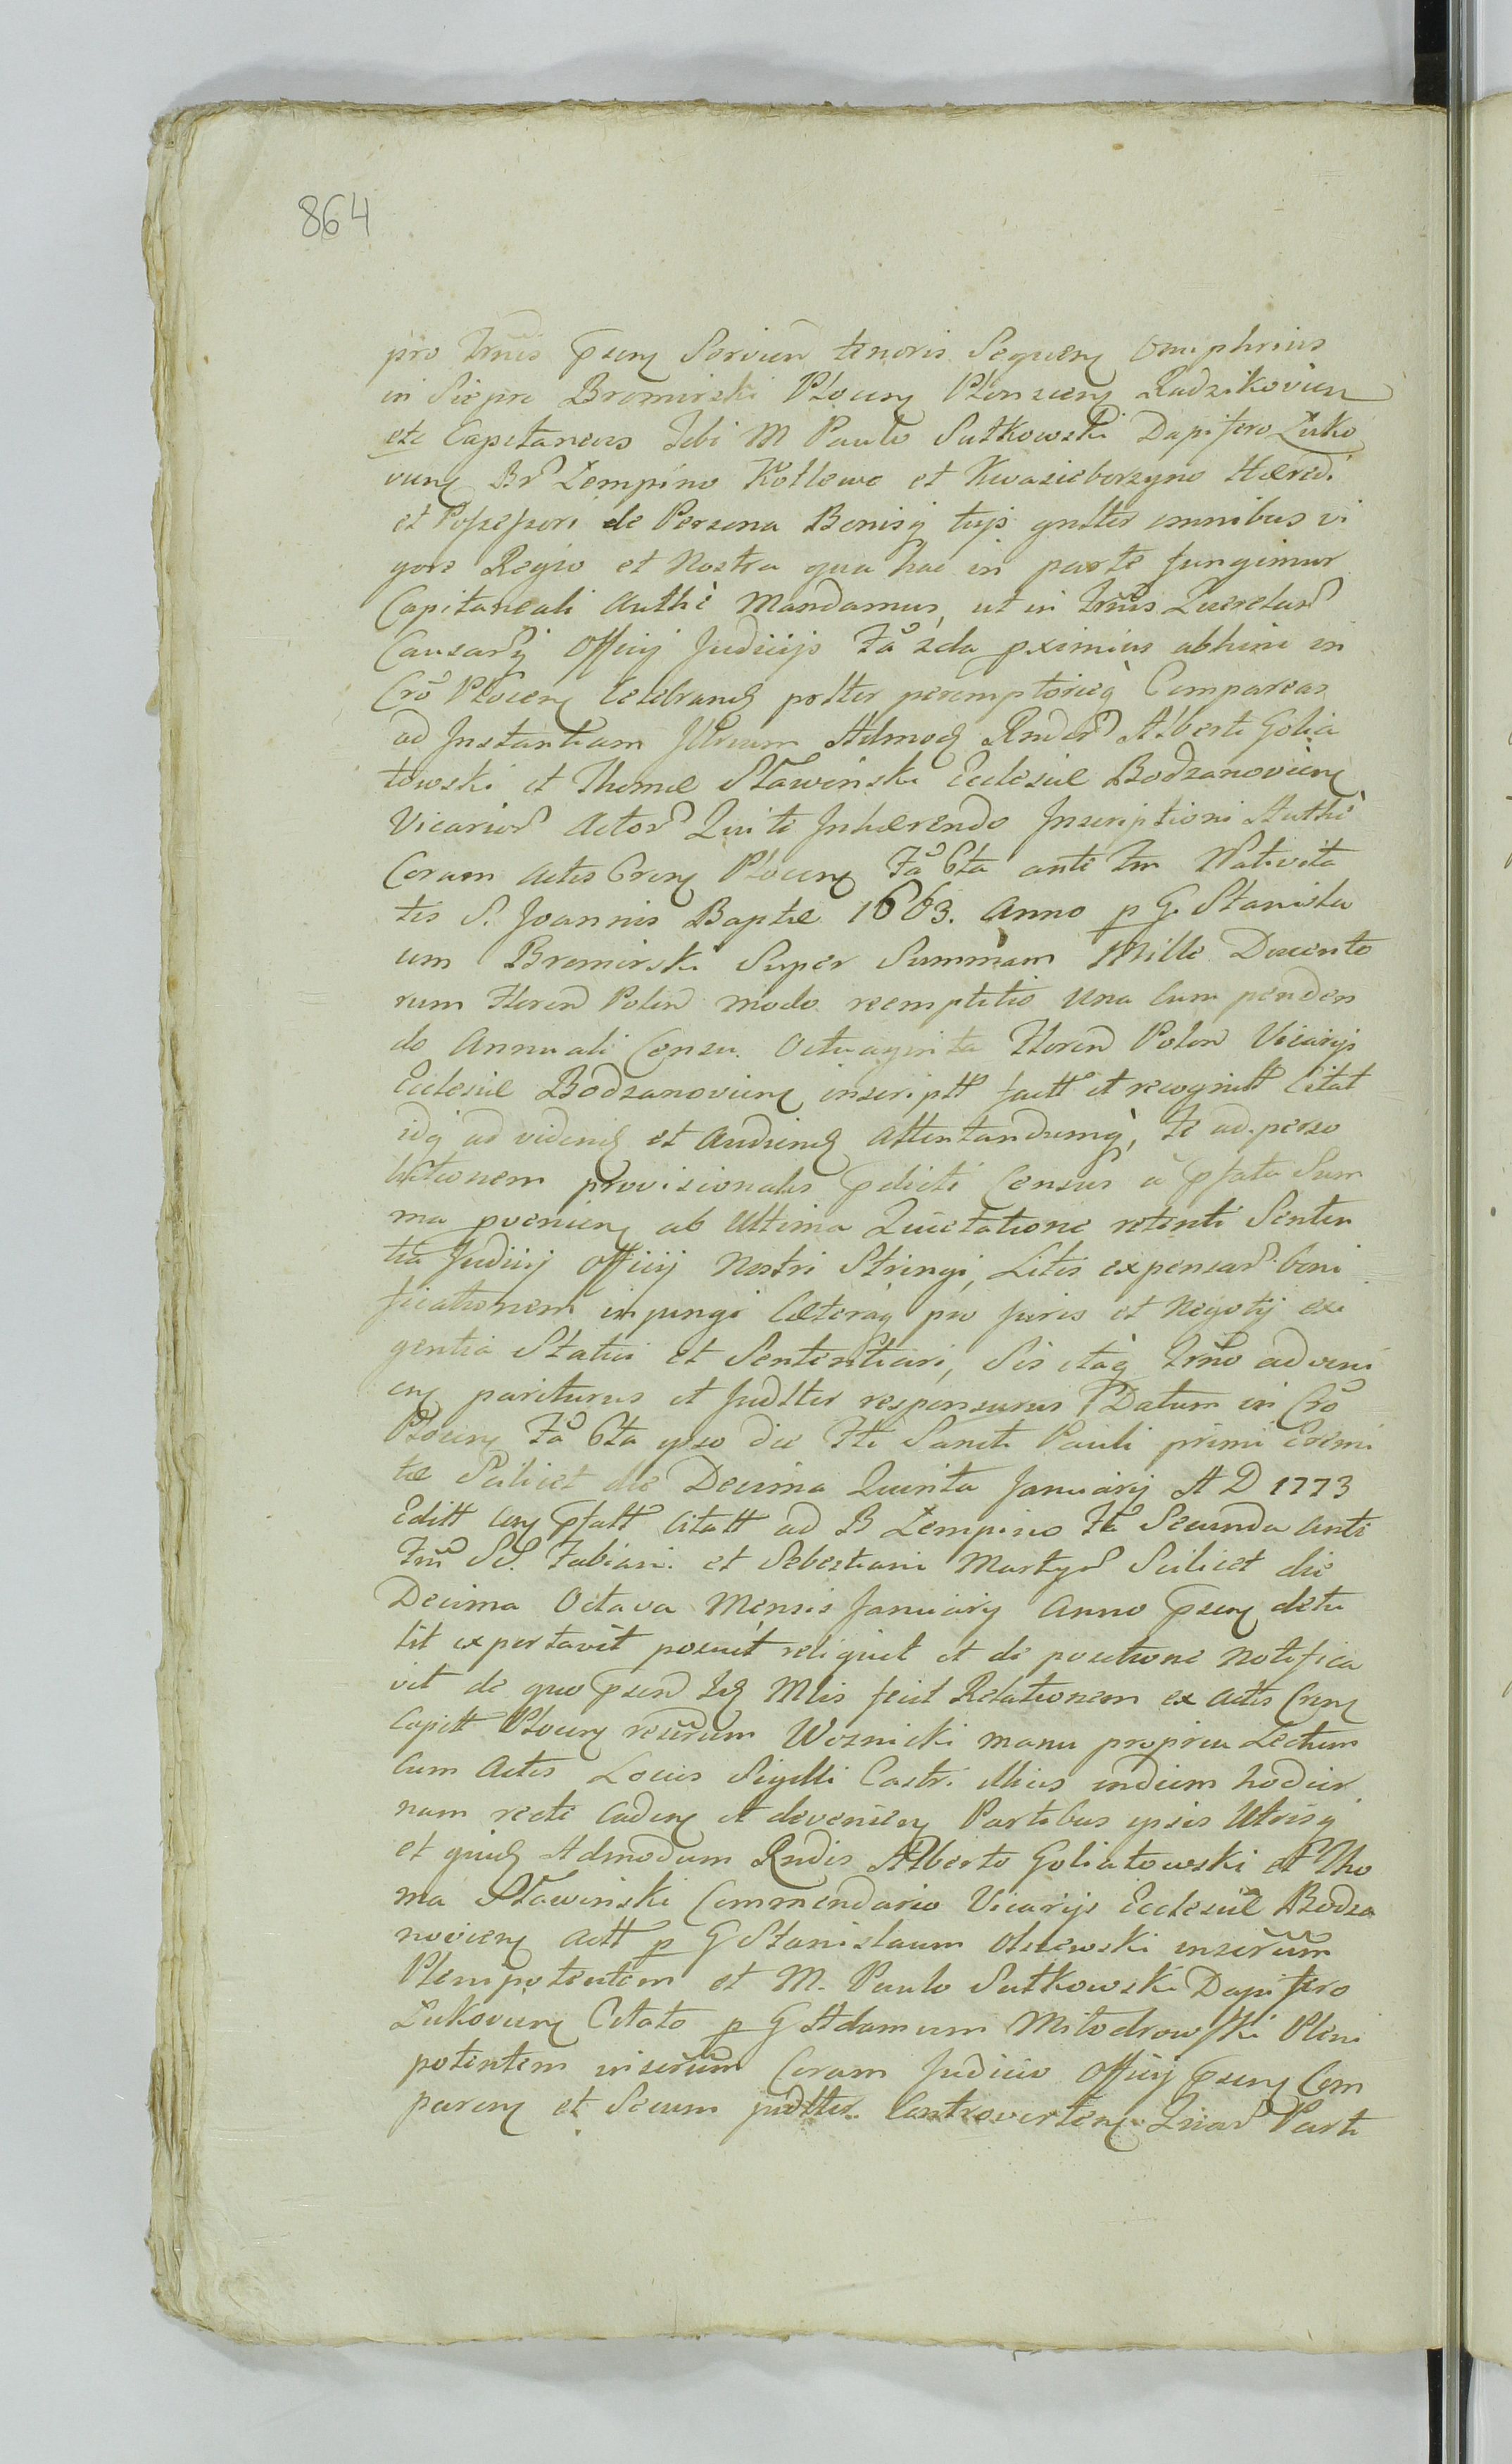 864
pro Trmis pseny Servien tenoris Sequeny Onuphrius
in Siepre Bromirski Plocen Plonscen Radzikovien
etc Capitaneus Tibi M Paulo Sutkowski Dapifero Łuko
vieny Br Łempino Kotlewo et Kwasieborzyno Hæredi
et Possessori de Persona Bonisq tujs gnlter omnibus vi
gore Regio et Nostra qua hac in parte fungimur
Capitaneali Authè Mandamus, ut in Trmis Querelar
Causarq Officij Judicijs Fa 2da pximius abhinc in
Cro Ploceny Celebrand pstter peremptorieq Compareas
ad Instantiam Illrium Admod Rndor Alberti Golia
towski et Thomæ Sławinski Ecclesiæ Bodzanovieny
Vicarior Actor Qui te Inhærendo Inscriptioni Authè
Coram Actis Creny Ploceny Fa 6ta ante Fm Nativita
tis S. Joannis Baptæ 1663. Anno p G. Stanisla
um Bromirski Super Summam Mille Ducento
rum Floren Polon modo reemptitio Una Cum penden
do Annuali Censu. Octuaginta Floren Polon Vicarijs
Ecclesiæ Bodzanovieny inscriptt factt et recognitt Citat
idq ad videnđ et Audienđ Attentandumq, te ad perso
lutionem provisionalis pdicti Census à pfata Sum
ma pvenieny ab Ultima Quietatione retenti Senten
tia Judicij Officij Nostri Stringi, Litis expensar boni
ficationem injungi Cæteraq pro Juris et Negotij exi
gentia Statui et Sententiari, Sis itaq Trmo adveni
eny pariturus et Judlter responsurus Datum in Cro
Ploceny Fa 6ta ipso die Fti Sancti Pauli primi Eremi
tæ Scilicet die Decima Quinta Januarij A D 1773
Editt Cuj pfatt Citatt ad B Łempino Fa Secunda Ante
Fm SS. Fabiani et Sebestiani Martyr Scilicet die
Decima Octava Mensis Januarij Anno pseny detu
lit exportavit posuit reliquit et de positione Notifica
vit de quo psen Mlis fecit Relationem ex Actis Creny
Capitt Ploceny Woznicki manu propria Lectum
Cum Actis Locus Sigilli Castri illius indiem hodier
nam recte Cadeny et devenieny Partibus ipsis Utrisq
et quid Admodum Rndis Alberto Goliatowski et Tho
ma Sławinski Commendario Vicarijs Ecclesiæ Bodza
novieny Actt p G Stanislaum Olszewski
Plenipotentem et M. Paulo Sutkowski Dapifero
Łukovieny Citato p G Adamum Miłodrowski Pleni
potentem Coram Judicio Officij pseny Com
pareny et Secum judlter Controverteny Quar Parti